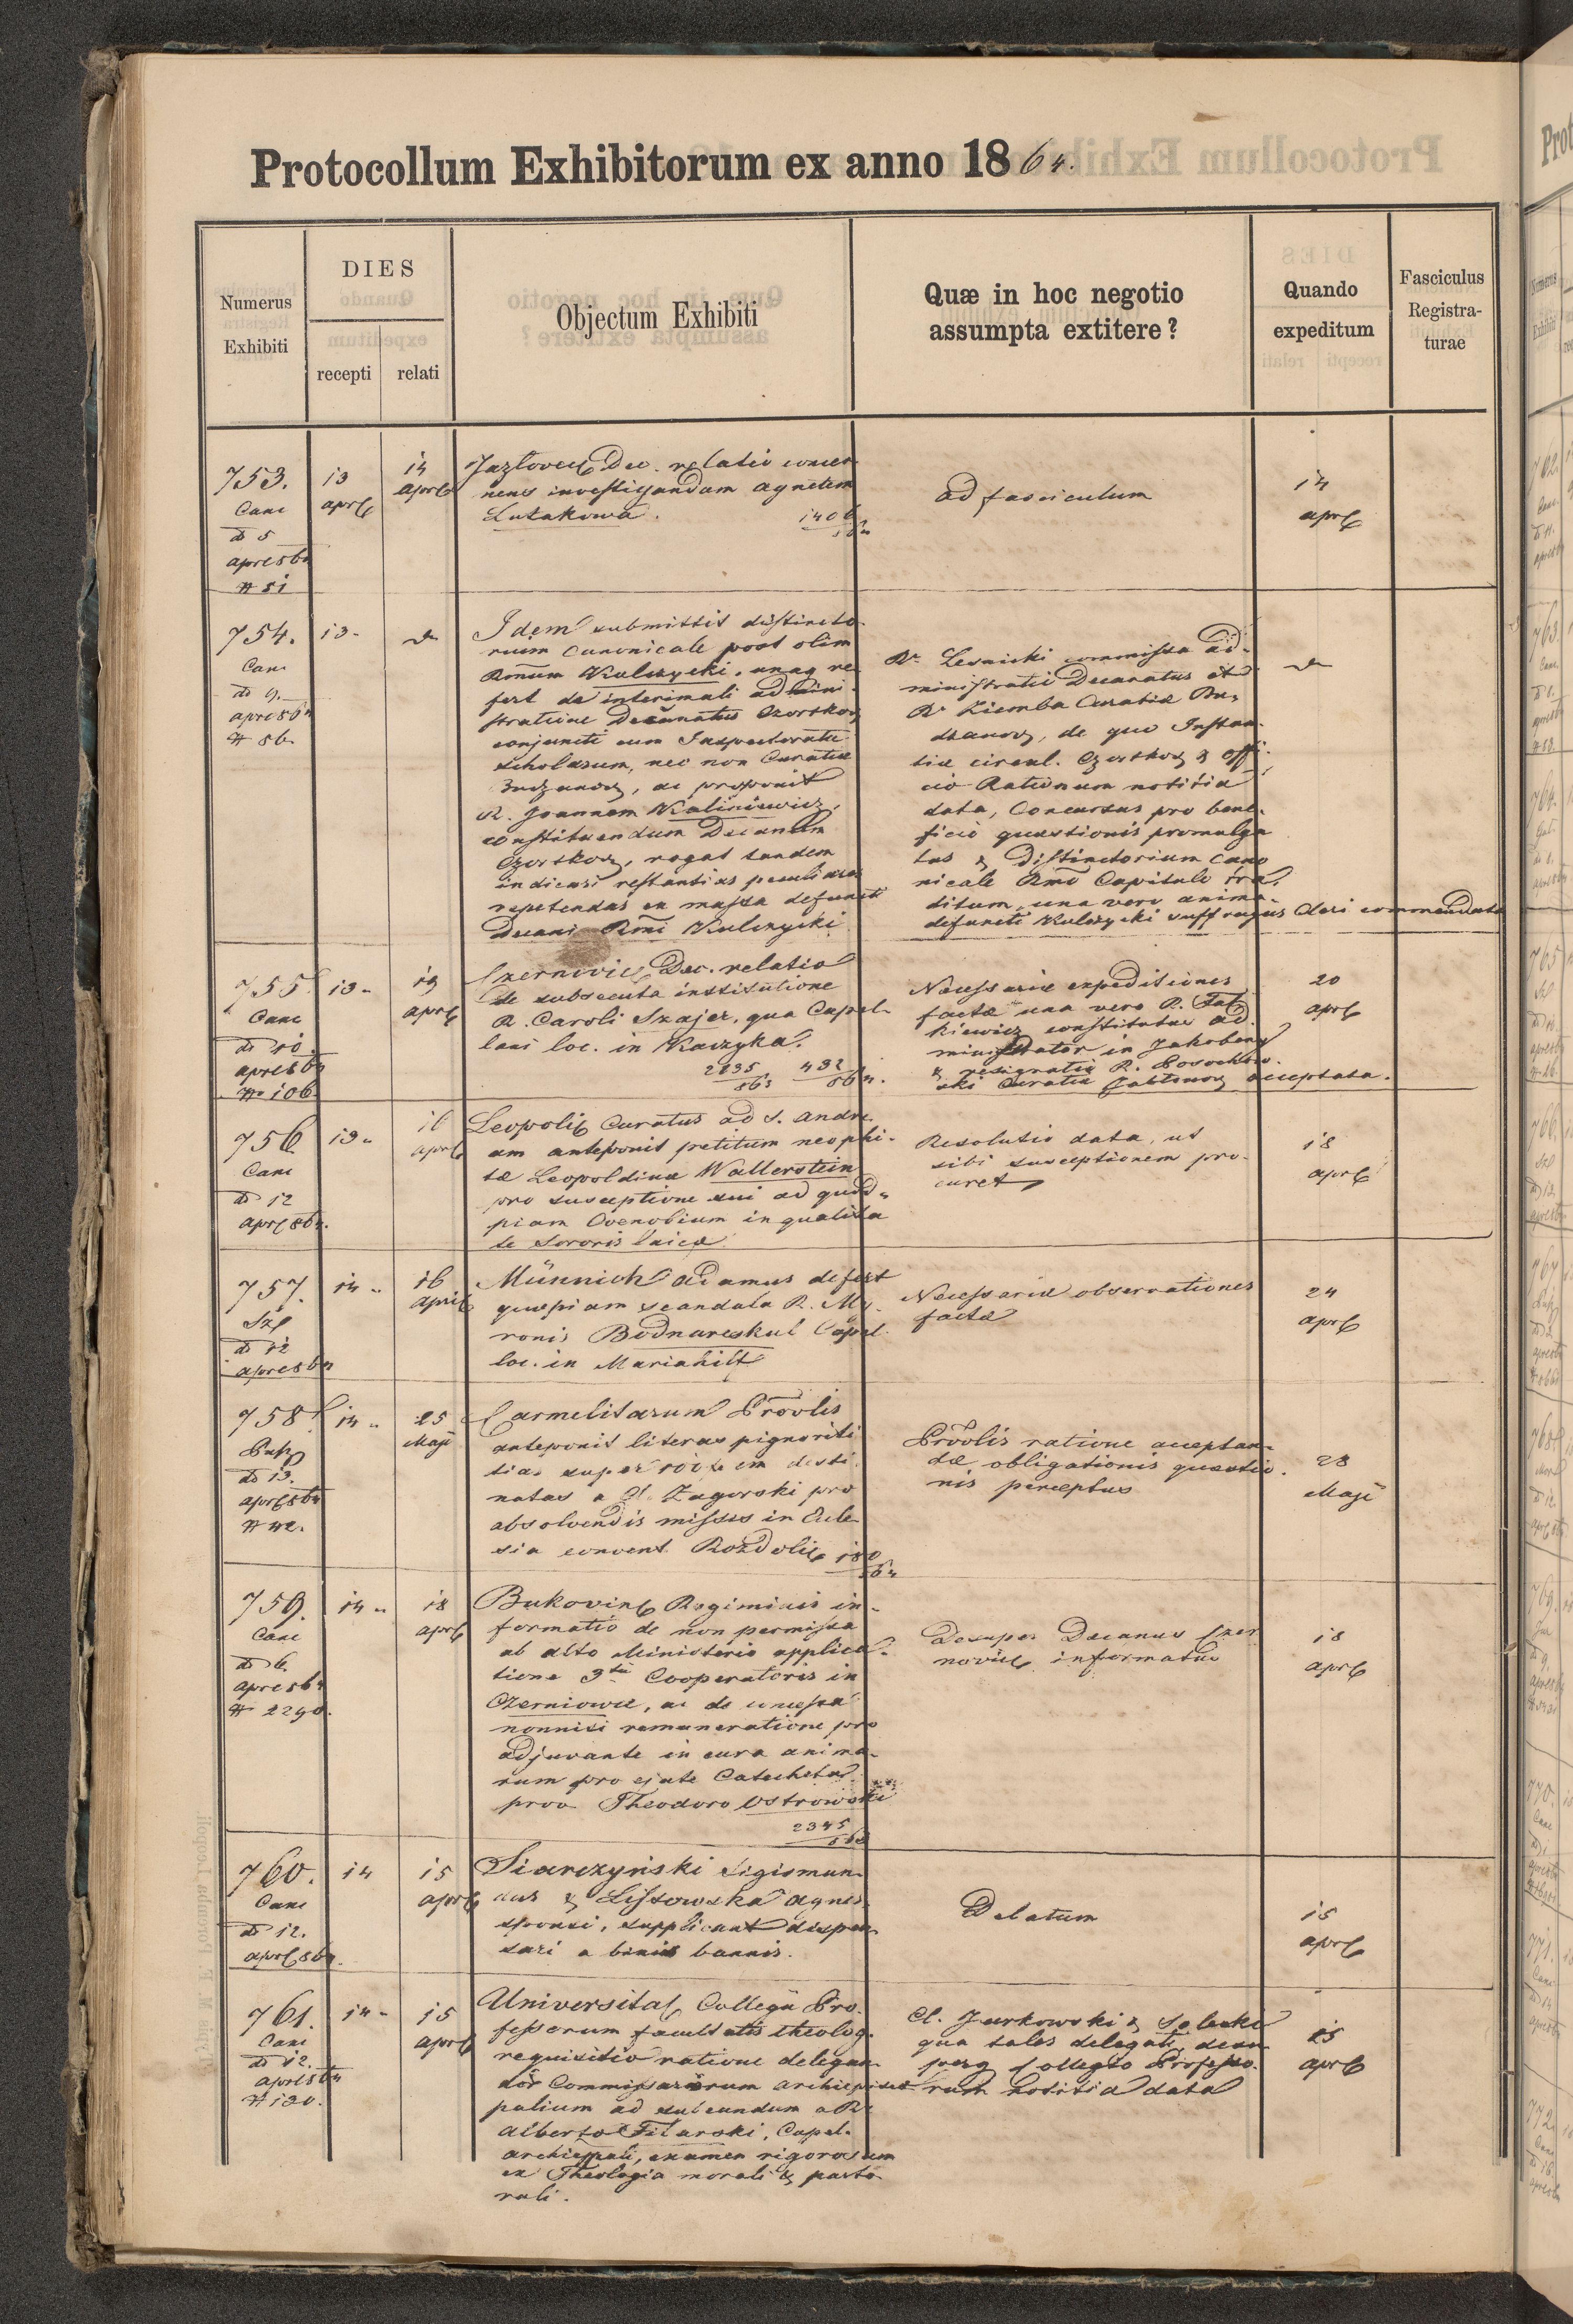 Protocollum Exhibitorum ex anno 1864.
Numerus Exhibiti
DIES
recepti
relati
Objectum Exhibiti
Quæ in hoc negotio
assumpta extitere?
Quando
expeditum
Fasciculus
Registra-
turae
753.
Canc
dd 5
apr 864
# 81
13
apr
14
apr
Jazlovec Dec. relatio concer-
nens investigandam Agnetem
Lutakowa.
ad fasciculum
14
apr
754.
Canc
dd 9.
apr 864
# 86
13
Idem submittit distincto-
rium Canonicale post olim
Rmum Kulczycki, unaq re-
fert de interimali admini-
stratione Decanatus Czortkov
conjuncti cum Inspectoratu
scholarum, nec non Curatiæ
, ac proponit
R. Joannem Kaliniewicz,
constituendum Decanum
Czortkov, rogat tandem
indicari restantias peculiares
repetendas ex massa defuncti
Decani Rmi Kulczycki
R. Lesnicki commissa ad-
ministratio Decanatus et
R. Ziemba Curatiæ Bu-
dzanov, de quo Instan-
tiæ circul. Czortkov & Offi-
cio Rationum notitia
data, Concursus pro bene-
ficio quæstionis promulga
tus & Distinctorium Cano
nicale Rmo Capitulo tra-
ditum, una vero anima
defuncti Kulczycki suffragiis Cleri commendata
755
Canc
dd 10.
apr 864
# 106
13
19
apr
Czernovic Dec. relatio
de subsecuta institutione
R. Caroli Szajer, qua Capel-
lani loc. in Kaczyka.
2835 432
863 864.
Necessariæ expeditiones
factæ una vero R.
kiewicz constitutus ad-
ministrator in Jakobeny
& resignatio R.
ski Curatiæ acceptata.
20
apr
756
Canc
dd 12
apr 864.
13
16
apr
Leopoli Curatus ad S. Andre-
am anteponit petitum neophi-
tæ Leopoldinæ Wallerstein
pro susceptione sui ad quod-
piam Coenobium in qualita
te Sororis laicæ
Resolutio data, ut
sibi susceptionem pro-
curet
18
apr
757.
dd 12
apr 864
14
16
April
Münnich Adamus defert
quæpiam scandala R. My-
ronis Bodnareskul Capel.
loc. in Mariahilf
Necessariæ observationes
factæ
24
apr
758
dd 13.
apr 864
# 42.
14
25
Maji
Carmelitarum Provlis
anteponit literas pignoriti
tias super 100 f. em desti-
natas a Zagorski pro
absolvendis missis in Eccle-
sia convent. Rozdoli
180
864
Provlis ratione acceptan-
dæ obligationis quæstio-
nis perceptus
28
Maji
759.
Canc
dd 6.
apr 864
# 2290.
14
18
apr
Bukovin Regiminis in-
formatio de non permissa
ab alto Ministerio applica-
tione 3tii Cooperatoris in
Czerniowce, ac de concessa
nonnisi remuneratione pro
adjuvante in cura anima-
rum pro ejate Catecheta
prov. Theodoro Ostrowski
2345
863
Desuper Decanus Czer
novic informatus
18
apr
760.
Canc
dd 12.
apr 864.
14
15
apr
Siarczyński Sigismun-
dus & Lissowska Agnes
sponsi, supplicant dispen-
sari a binis bannis.
Delatum
15
apr
761.
Canc
dd 12.
apr 864
# 130.
14
15
apr
Universitat Collegii Pro-
fessorum facultatis theolog.
requisitio ratione delegan-
dor Commissariorum Archiepisco
palium ad subeundum a R.
Alberto Filarski, Capel.
archieppali, examen rigorosum
ex Theologia morali & pasto-
rali.
Cl. Jurkowski & Solecki
qua tales delegati, desu-
perq Collegio Professo-
rum notitia data
15
apr